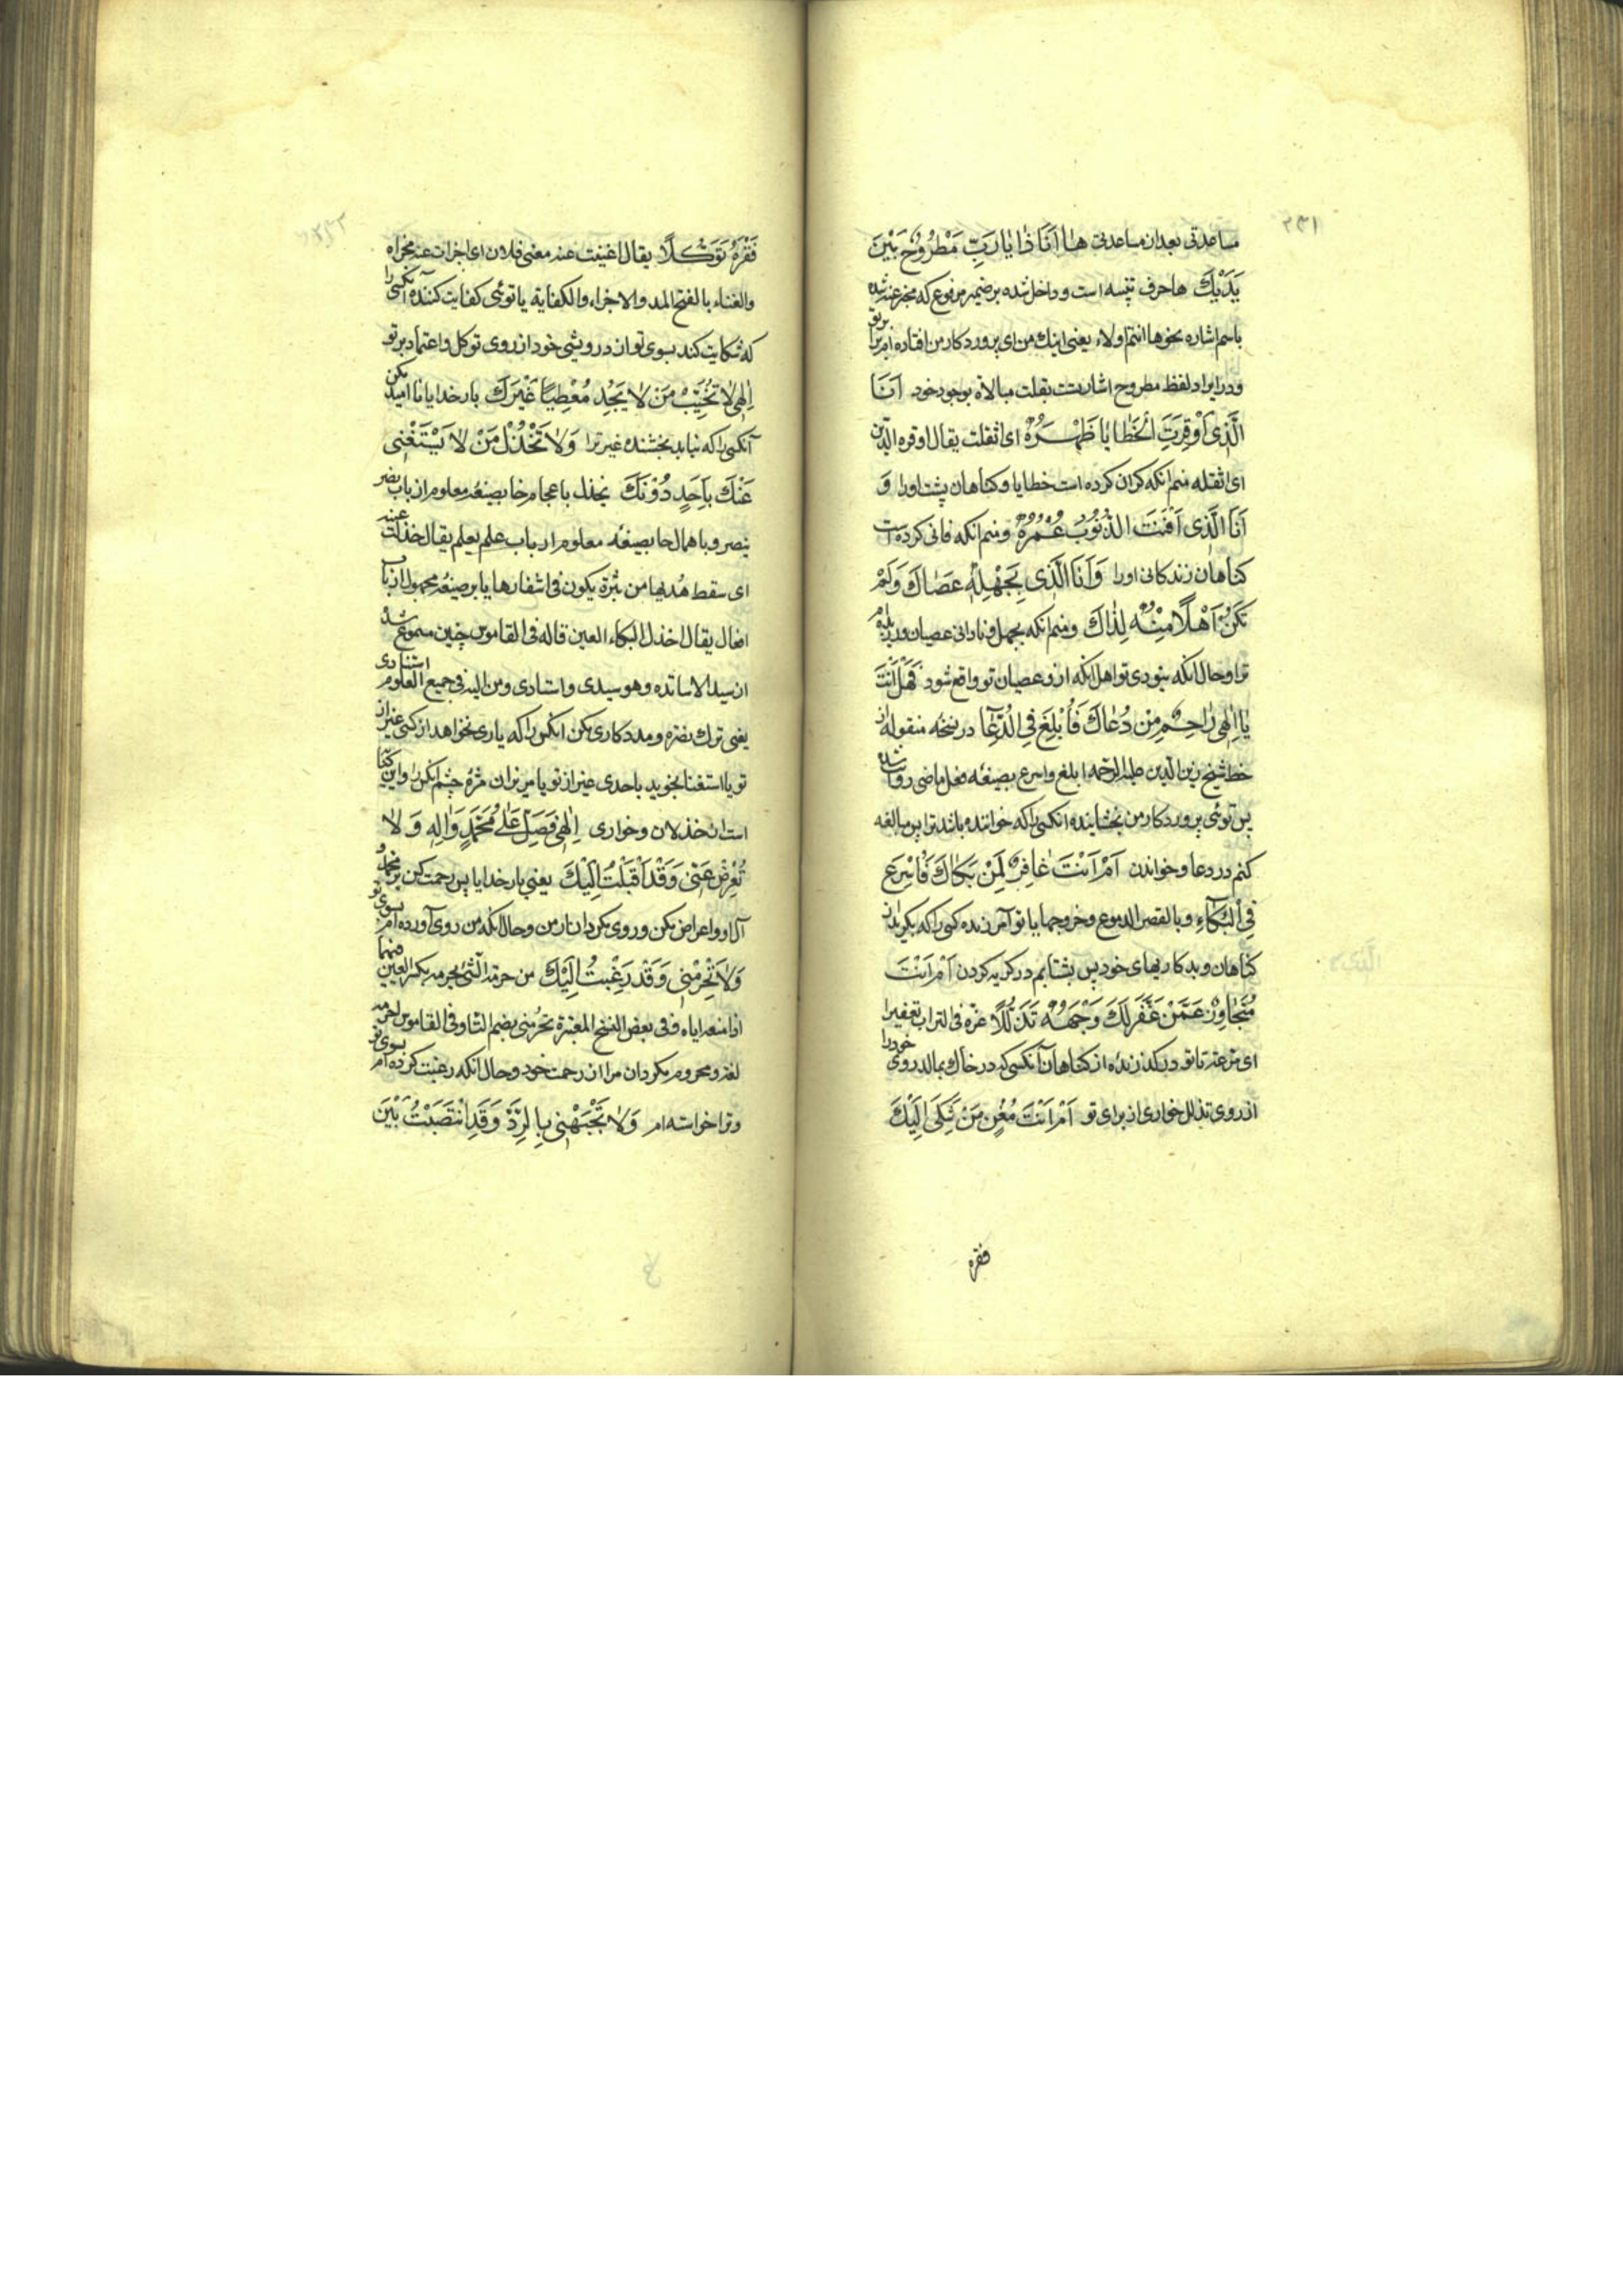 ٢٣١
مساعدتی بعد از مساعدتی هٰا اَنَا ذٰا یٰا رَبِّ مَطْرُوحٌ بَیْنَ
یَدَیْكَ ها حرف تنبیه است و داخل شده بر ضمیر مرفوع که مخبر عنه شده
باسم اشاره نحو ها انتم اولاء یعنی اینك من ای پروردکار من افتاده ام
و در ایراد لفظ مطروح اشارتست بقلت مبالاة بوجود خود اَنَا
الَّذی اَوْقَرَتِ الْخَطٰایٰا ظَهْرَهُ ای اثقلت یقال اوقره الدین
ای اثقله منم انکه کران کرده است خطایا و کناهان پشت او را وَ
اَنَا الَّذی اَفْنَتِ الذُّنُوبُ عُمْرَهُ و منم انکه فانی کرده است
کناهان زندکانی او را وَ اَنَا الَّذی بِجَهْلِهِ عَصٰاكَ وَلَمْ
تَكُنْ اَهْلًا مِنْهُ لِذٰاكَ و منم انکه بجهل و نادانی عصیان ورزیده
ترا و حال انکه نبودی تو اهل انکه ازو عصیان تو واقع شود فَهَلْ اَنْتَ
یٰا اِلٰهی رٰاحِمٌ مَنْ دُعٰاكَ فَاُبْلِغَ فِی الدُّعٰاءِ در نسخه منقوله از
خط شیخ زین الدین علیه الرحمه ابلغ و اسرع بصیغه فعل ماضی روایت شده
پس توئی پروردکار من بخشاینده انکسی را که خوانده باشد ترا پس مبالغه
کنم در دعا و خواندن اَمْ اَنْتَ غٰافِرٌ لِمَنْ بَكٰاكَ فَاُسْرِعَ
فِی الْبُكٰاءِ و بالقصر الدموع و خروجها یا تو آمرزنده کسی را که بکرید از
کناهان و بدکاریهای خود پس بشتابم در کریه کردن اَمْ اَنْتَ
مُتَجٰاوِزٌ عَمَّنْ عَفَّرَ لَكَ وَجْهَهُ تَذَلُّلًا عفره فی التراب تعفیرا
ای مرغه تا تو درکذرنده از کناهان آنکسی که در خاك بمالد روی خود را
از روی تذلل خواری از برای تو اَمْ اَنْتَ مُغْنٍ مَنْ شَكٰی اِلَیْكَ
فقره
٢٣٢
فَقْرَهُ تَوَكُّلًا یقال اغنیت عنه مغنی فلان ای اجزات عنه مجزاه
والغناء بالفتح المد والاجزاء والکفایة یا توئی کفایت کننده آنکسی را
که شکایت کند بسوی تو از درویشی خود از روی توکل و اعتماد بر تو
اِلٰهی لٰا تُخَیِّبْ مَنْ لٰا یَجِدُ مُعْطِیًا غَیْرَكَ بار خدایا نا امید مکن
آنکسی را که نیابد بخشنده غیر ترا وَلٰا تَخْذُلْ مَنْ لٰا یَسْتَغْنی
عَنْكَ بِاَحَدٍ دُونَكَ یخذل باعجام خا بصیغه معلوم از باب نصر
ینصر و باهمال حا بصیغه معلوم از باب علم یعلم یقال حذلت عینه
ای سقط هدبها من بثرة یکون فی اشفارها یا بر صیغه مجهول از باب
افعال یقال احذل البکاء العین قاله فی القاموس چنین مسموع شد
از سید الاساتده وهو سیدی و استادی و من الیه فی جمیع العلوم استنادی
یعنی ترك نصره و مددکاری مکن انکس را که یاری نخواهد از کسی غیر از
تو یا استغنا نجوید باحدی غیر از تو یا مریزان مژهٔ چشم انکس را و این کنایت
است از خذلان و خواری اِلٰهی فَصَلِّ عَلٰی مُحَمَّدٍ وَ اٰلِهِ وَ لٰا
تُعْرِضْ عَنّی وَ قَدْ اَقْبَلْتُ اِلَیْكَ یعنی بار خدایا پس رحمت کن بر محمد و
آل او و اعراض مکن و روی مکردان از من و حال انکه من روی آورده ام بسوی تو
وَلٰا تَحْرِمْنی وَ قَدْ رَغِبْتُ اِلَیْكَ من حرمه الشئ یحرمه بکسر العین فیهما
اذا منعه ایاه و فی بعض النسخ المعتبرة تحرمنی بضم التاء و فی القاموس احرمه
لغة و محروم مکردان مرا از رحمت خود و حال انکه رغبت کرده ام بسوی تو
و ترا خواسته ام وَلٰا تَجْبَهْنی بِالرَّدِّ وَ قَدِ انْتَصَبْتُ بَیْنَ